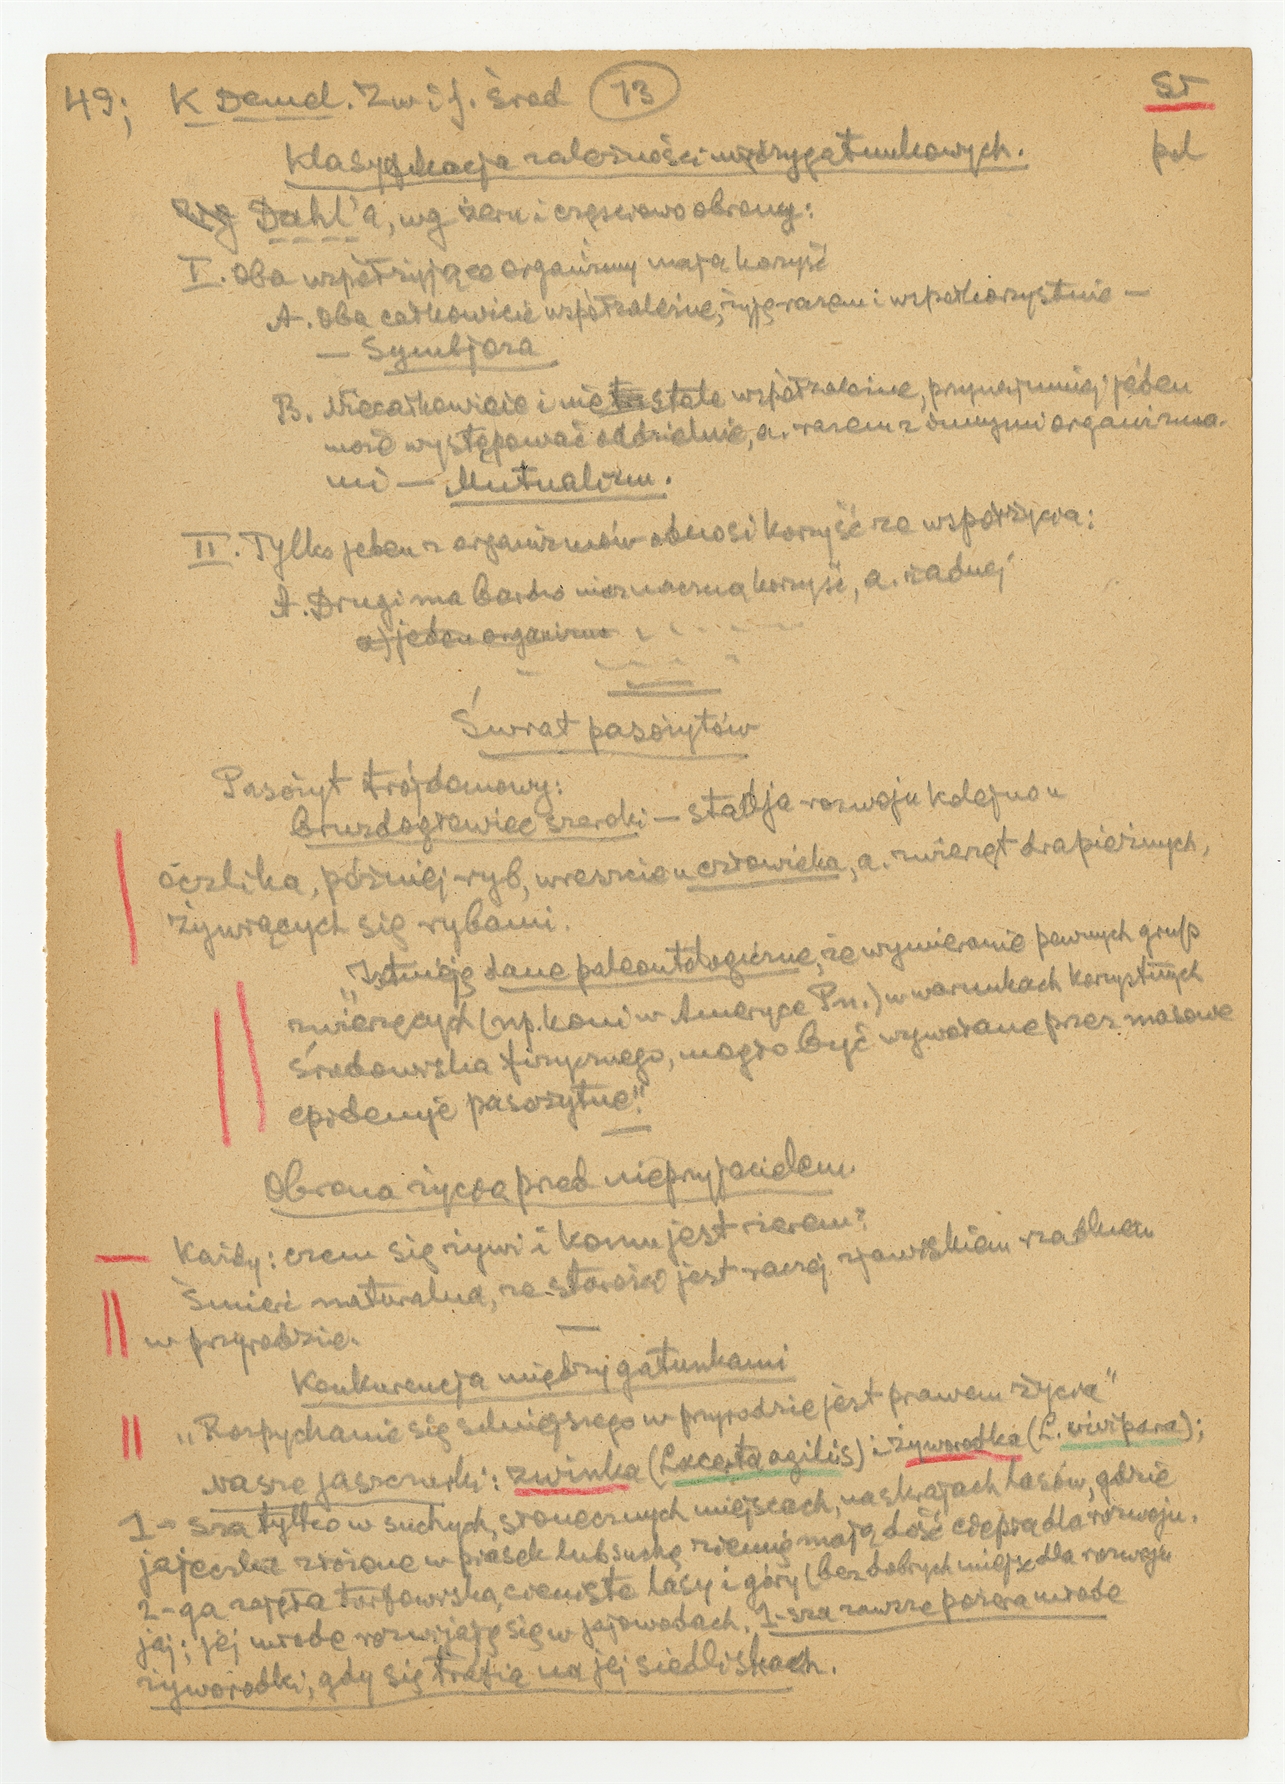 49; K Demel. Zw i f. Środ 13 Śr
Klasyfikacja zależności międzygatunkowych. pol
Dahl'a, wg żeru i częściowo obrony:
I. Oba współżyjące organizmy mają korzyść
A. Oba całkowicie współzależne, żyją razem i współkorzystnie —
— Symbjoza
B. Niecałkowicie i nie stale współzależne, przynajmniej jeden
może występować oddzielnie, a. razem z innymi organizma-
mi — Mutualizm.
II. Tylko jeden z organizmów odnosi korzyść ze współżycia:
A. Drugi ma bardzo nieznaczną korzyść, a. żadnej
a) jeden organizm
Świat pasożytów
Pasożyt trójdomowy:
bruzdogłowiec szeroki — stadja rozwoju kolejno u
oczlika, później ryb, wreszcie u człowieka, a. zwierząt drapieżnych,
żywiących się rybami.
„Istnieją dane paleontologiczne, że wymieranie pewnych grup
zwierzęcych (np. koni w Ameryce Pn.) w warunkach korzystnych
środowiska fizycznego, mogło być wywołane przez masowe
epidemje pasożytne."
Obrona życia przed nieprzyjacielem
Każdy: czem się żywi i komu jest żerem?
Śmierć naturalna, ze starości jest raczej zjawiskiem rzadkiem
w przyrodzie.
Konkurencja między gatunkami
„Rozpychanie się silniejszego w przyrodzie jest prawem życia"
nasze jaszczurki: zwinka (Lacerta agilis) i żyworodka (L. vivipara);
1-sza tylko w suchych, słonecznych miejscach, na skrajach lasów, gdzie
jajeczka złożone w piasek lub suchą ziemię mają dość ciepła dla rozwoju.
2-ga zajęła torfowiska, cieniste lasy i góry (bez dobrych miejsc dla rozwoju
jaj; jej młode rozwijają się w jajowodach. 1-sza zawsze pożera młode
żyworodki, gdy się trafią na jej siedliskach.